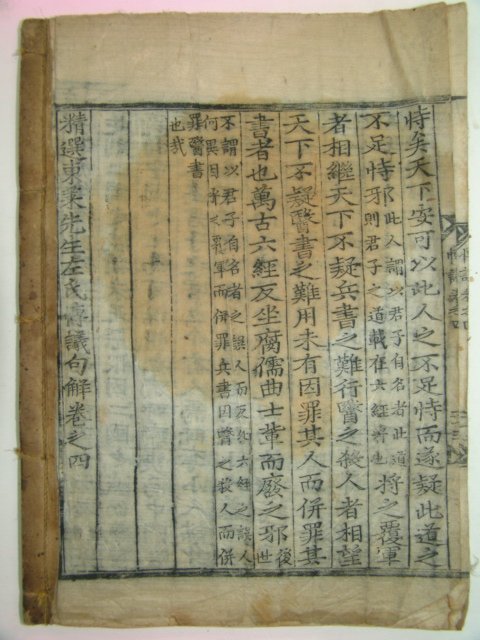 恃矣天下安可以此人之不足恃而遂疑此道之
不足恃邪
此人謂以君子自名者此道
則君子之道載在六經者也
將之覆軍
者相繼天下不疑兵書之難行醫之殺人者相望
天下不疑醫書之難用未有因罪其人而併罪其
書者也萬古六經反坐腐儒曲士輩而廢之邪
後
世
不謂以君子自名者之誤人而反
六經之誤人
何異因將之覆軍而併罪兵書因醫之殺人而併
罪醫書
也哉
精選東萊先生左氏博議句解卷之四